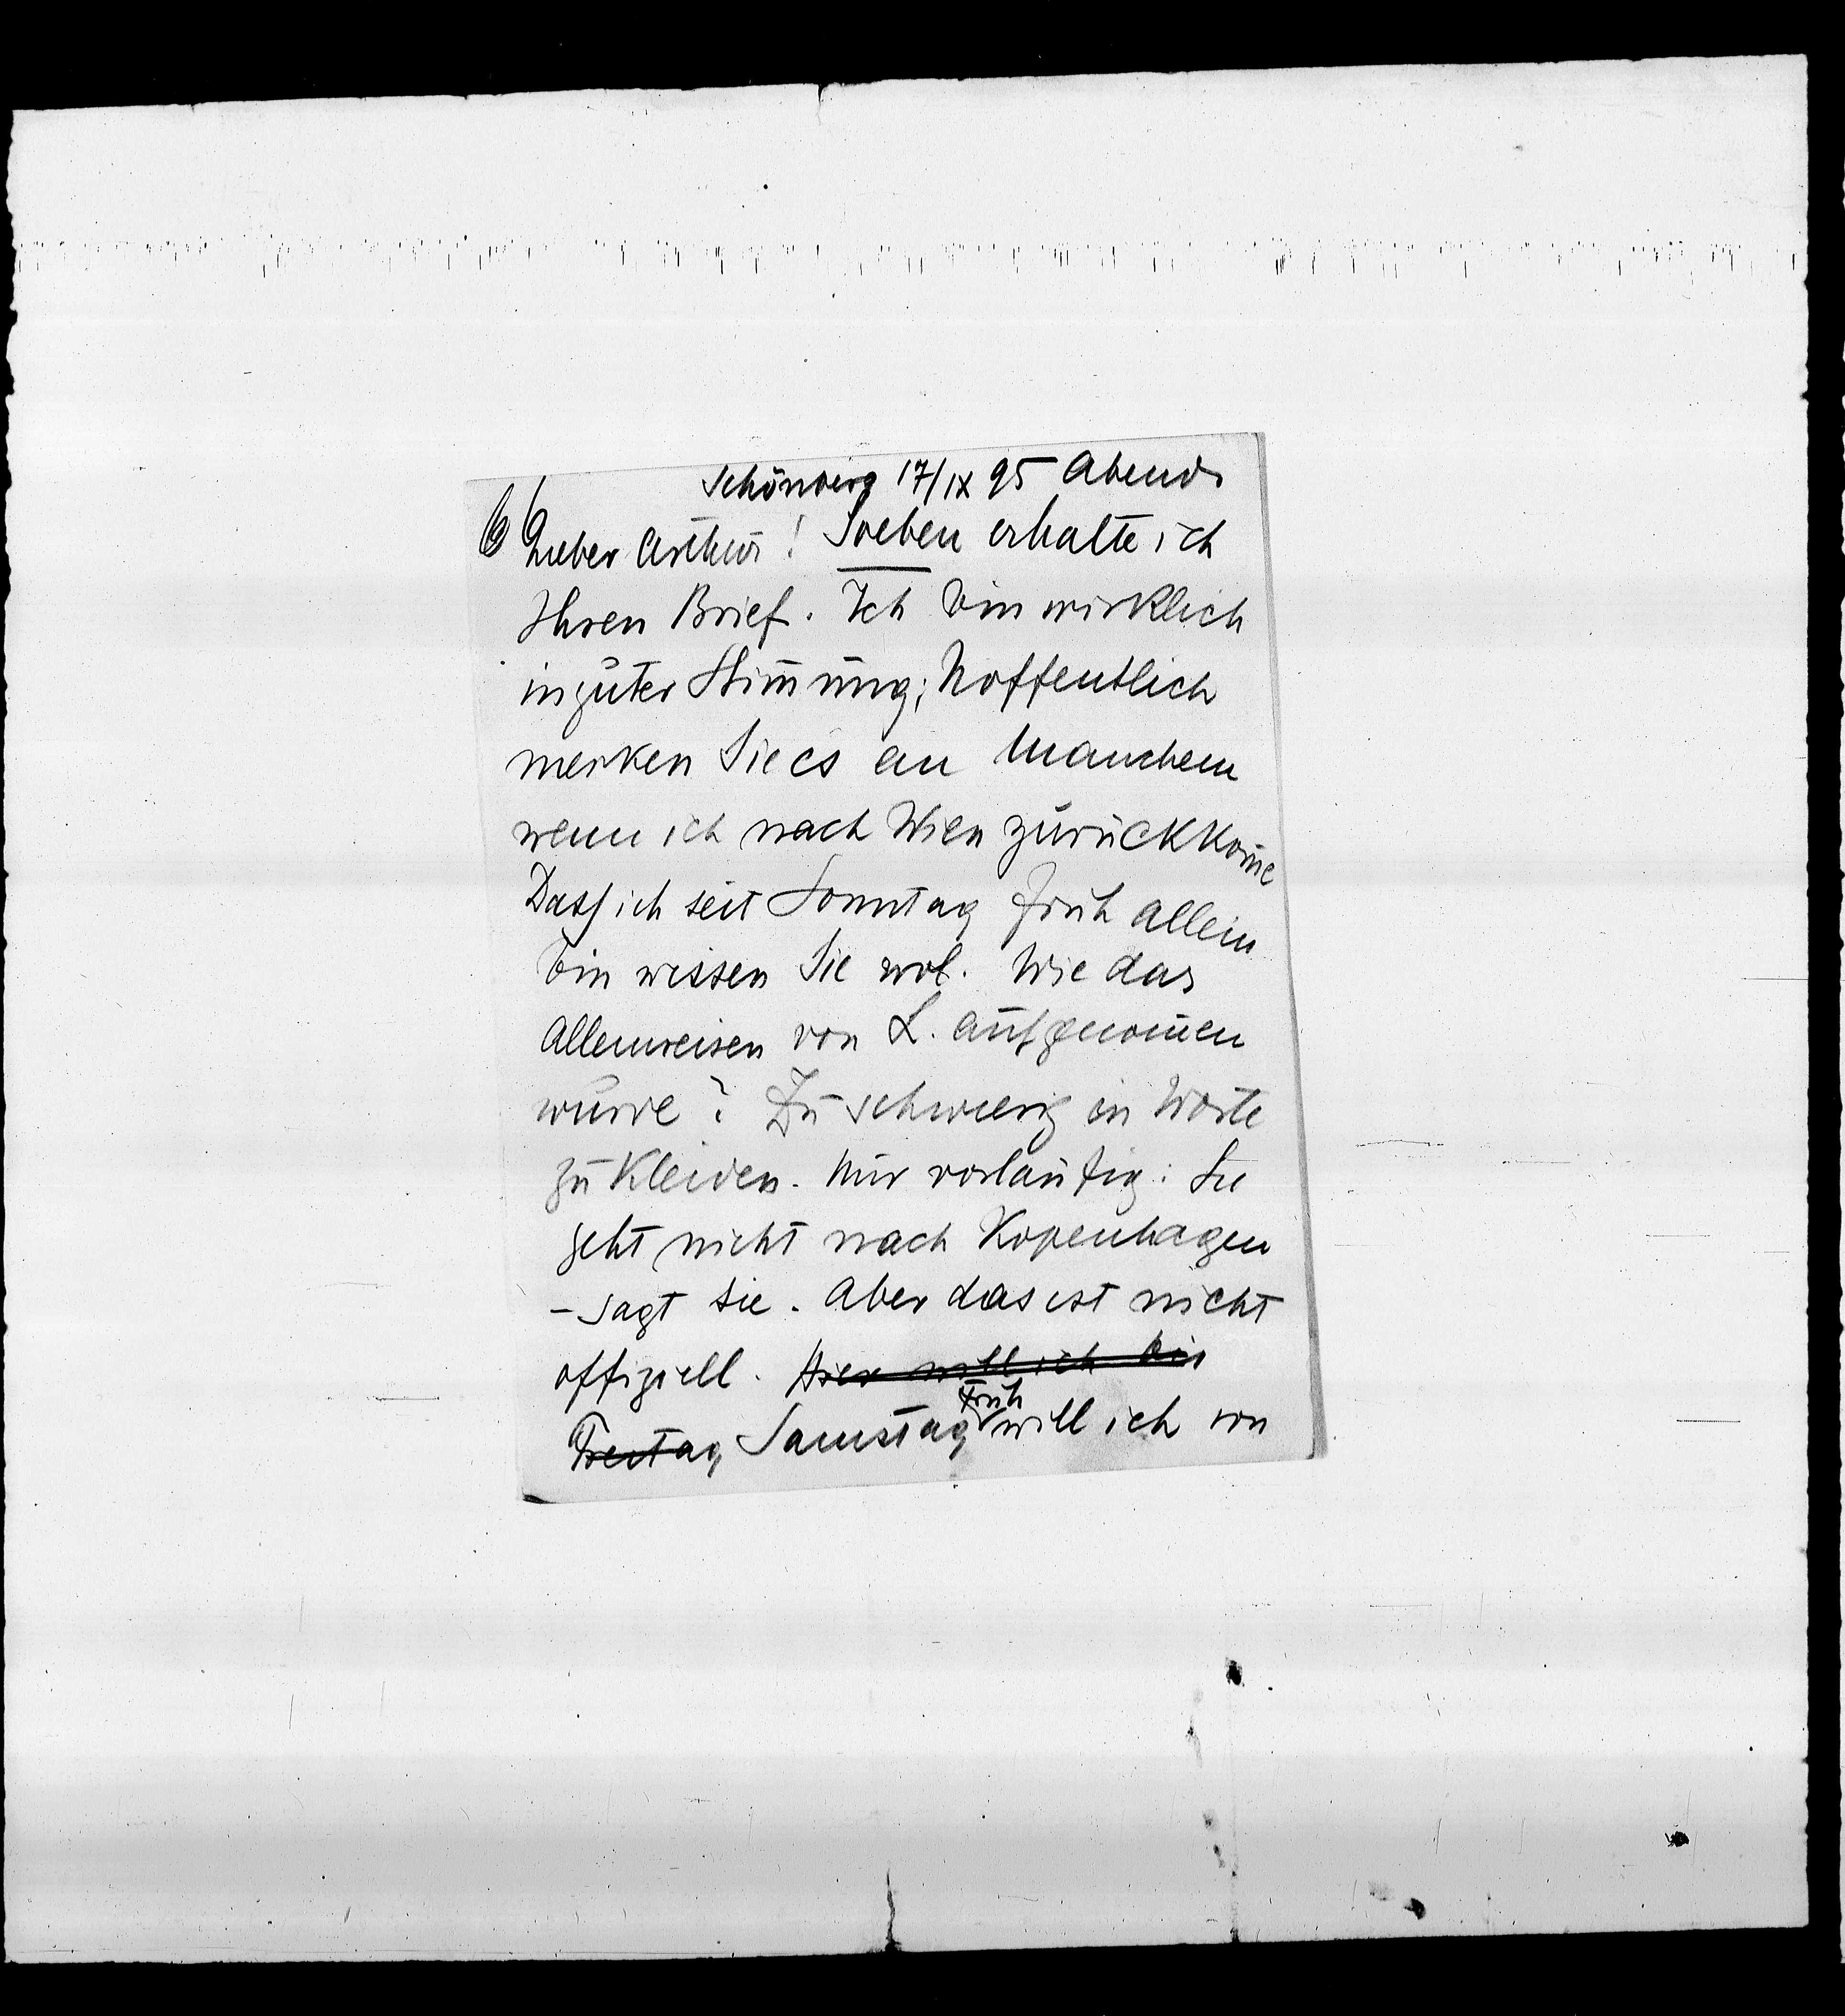 Schönberg 17/IX 95 Abends
66 Lieber Arthur! Soeben erhalte ich
Ihren Brief. Ich bin wirklich
in guter Stim̄ung; hoffentlich
merken Sie es an Manchem
wenn ich nach Wien zurückkom̄e
Dass ich seit Sonntag früh allein
bin wissen Sie wol. Wie das
Alleinreisen von L. aufgenom̄en
wurde? Zu schwierig in Worte
zu kleiden. Nur vorläufig: Sie
geht nicht nach Kopenhagen
– sagt sie. Aber das ist nicht
offiziell. Hier will ich bis
früh
Freitag Samstag will ich von